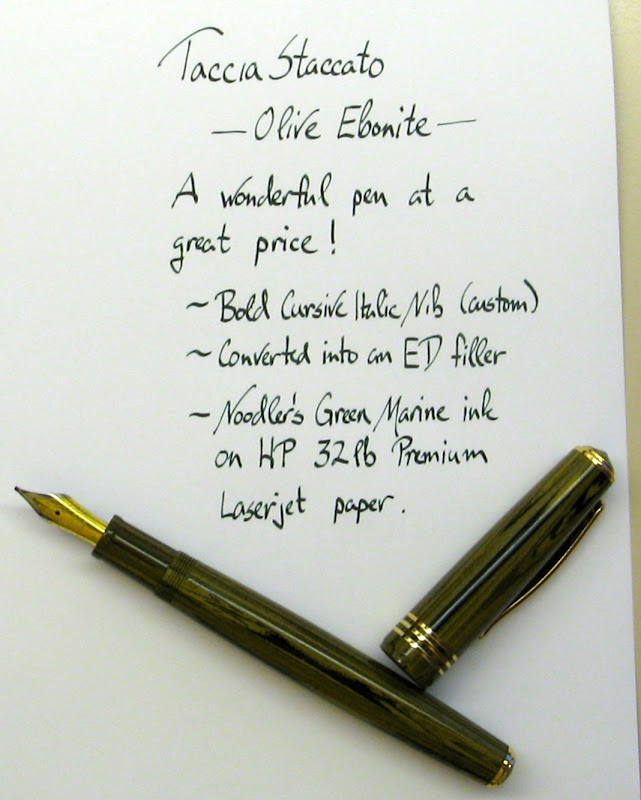 Taccia Staccato
— Olive Ebonite —
A wonderful pen at a
great price!
~ Bold Cursive Italic Nib (custom)
~ Converted into an ED filler
~ Noodler's Green Marine ink
on HP 32lb Premium
Laserjet paper.